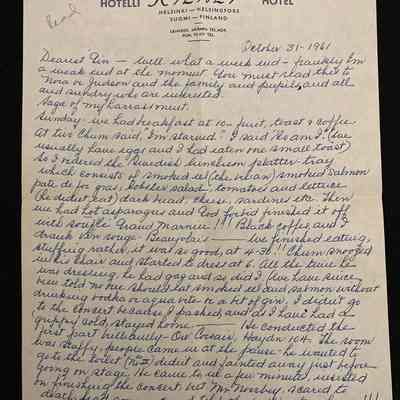 Read
HOTELLI HOTEL
HELSINKI — HELSINGFORS
SUOMI — FINLAND
October 31 - 1961
Dearest Pin — well what a week end — frankly I'm
a weak end at the moment. You must read this to
Nora or Judson and the family and pupils, and all
and sundry who are interested.
Saga of my harrassment.
Sunday we had breakfast at 10 - fruit, toast & coffee
At two Chum said, "I'm starved." I said "So am I" (we
usually have eggs and I had eaten one small toast)
So I ordered the Swedish luncheon platter tray
which consists of smoked eel (the villain) smoked salmon
pate de foi gras, lobster salad, tomatoes and lettuce
(he didn't eat) dark bread, cheese, sardines etc. Then
we had hot asparagus and God forbid finished it off
with soufflé Grand Marnier!!! Black coffee and I
drank vin rouge Beaujolais — we finished eating,
stuffing rather, it was so good, at 4-30!!! Chum snoozed
in his chair and started to dress at 6. All the time he
was dressing, he had gas and so did I (we have since
been told no one should eat smoked eel and salmon without
drinking vodka or aqua vite or a bit of gin. I didn't go
to the concert because I packed, and as I have had a
guppy cold, stayed home — He conducted the
first part brilliantly - Ov Corsair, Haydn 104. The room
was stuffy, people came in at the pause he wanted to
get to the toilet (No!!) didn't and fainted away just before
going on stage. He came to in a few minutes, insisted
on finishing the concert but Mr scared to
death